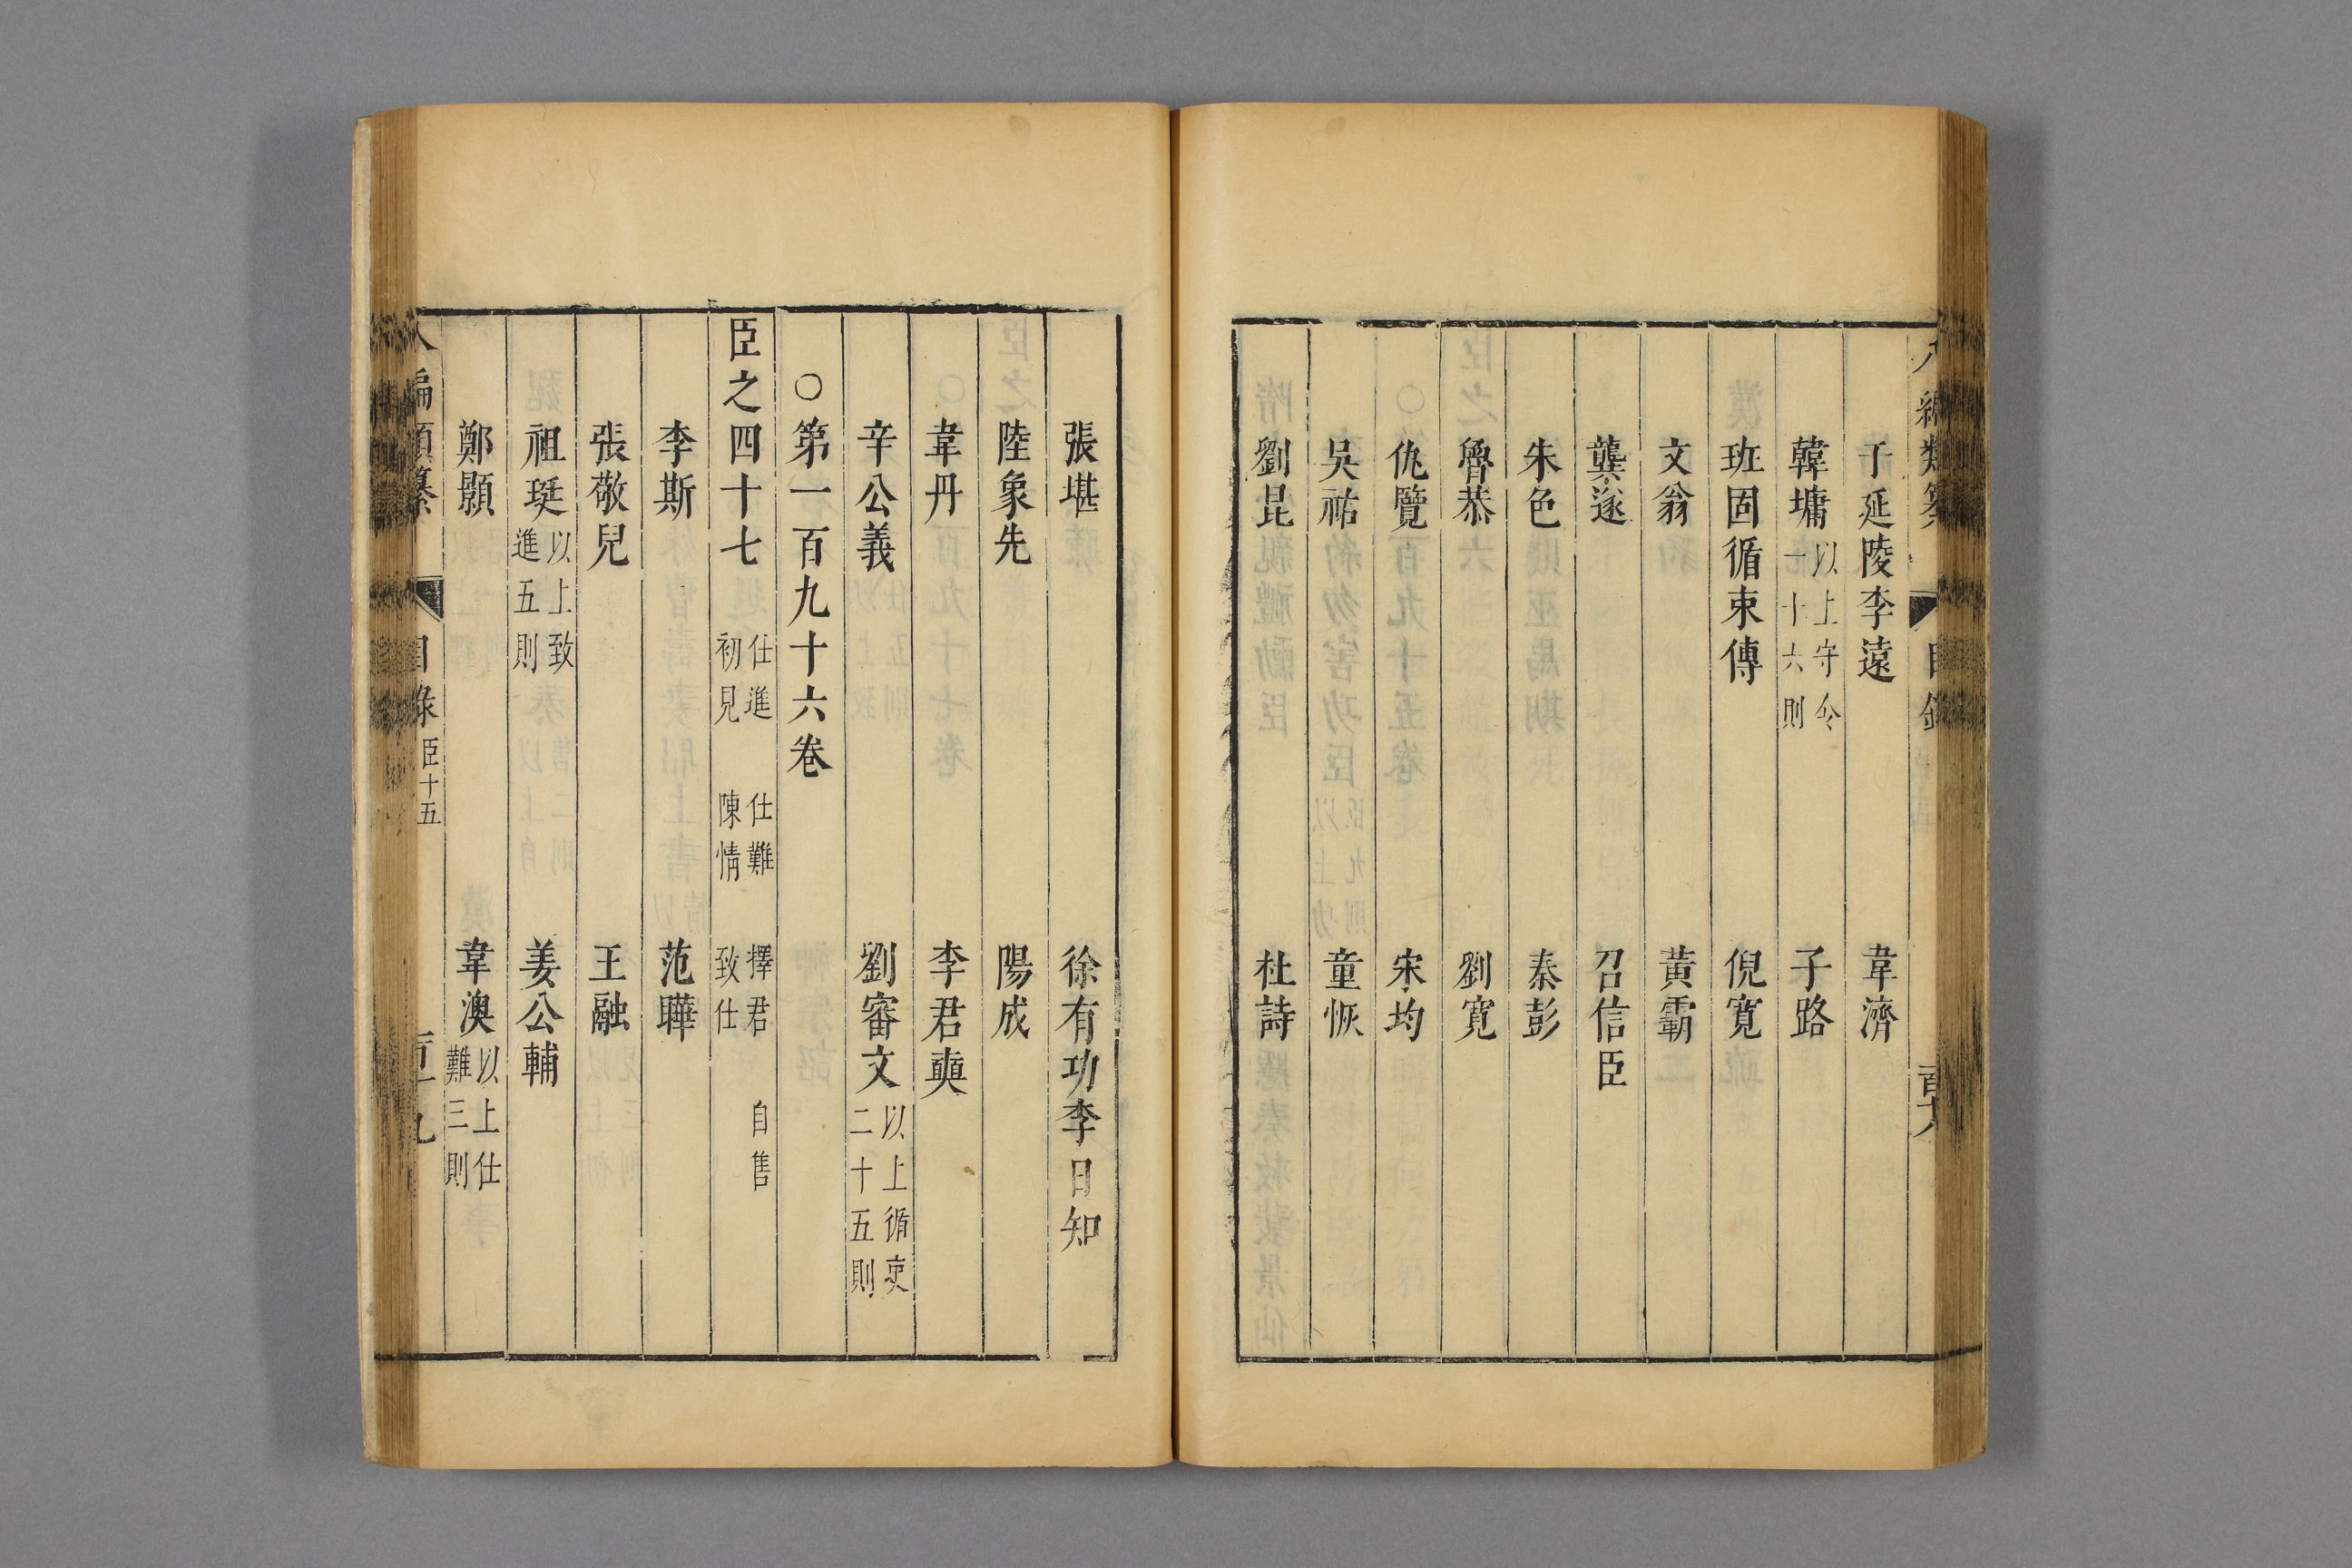 子延陵李遠 韋濟
韓墉以上守令一十六則 子路
班固循吏傳 倪寬
文翁 黃霸
龔遂 召信臣
朱色 秦彭
魯恭 劉寬
仇覽 宋均
吳祐 童恢
劉昆 杜詩
張堪 徐有功李日知
陸象先 陽成
韋丹 李君奭
辛公義 劉審文以上循吏二十五則
○第一百九十六卷
臣之四十七 仕進初見 仕難陳情 擇君致仕 自售
李斯 范曄
張敬兒 王融
祖珽以上致進五則 姜公輔
鄭顥 韋澳以上仕難三則
編類纂 目錄 臣十五 百十九